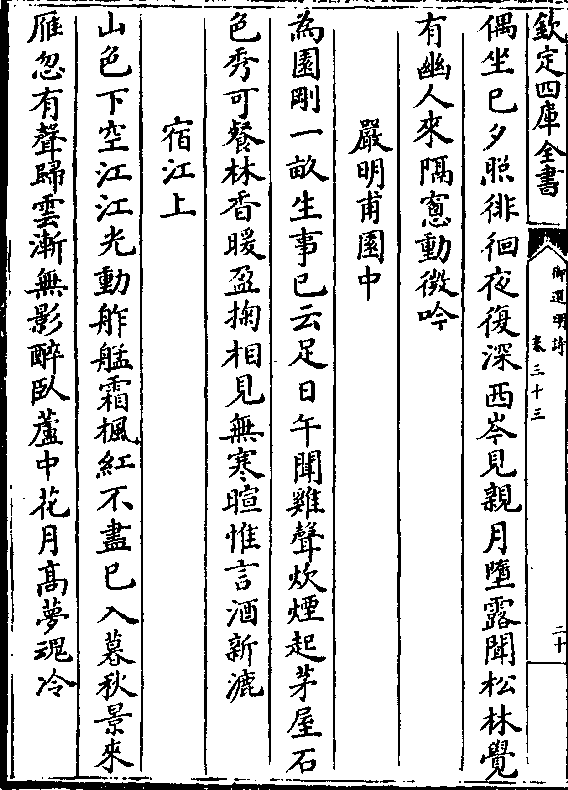 欽定四庫全書
御選明詩
卷三十三
二十
偶坐已夕照徘徊夜復深西岑見親月墮露聞松林覺
有幽人來隔窻動微吟
嚴明甫園中
為園剛一畝生事已云足日午聞雞聲炊煙起茅屋石
色秀可餐林香暖盈掬相見無寒暄惟言酒新漉
宿江上
山色下空江江光動舴艋霜楓紅不盡已入暮秋景來
雁忽有聲歸雲漸無影醉臥蘆中花月高夢魂冷